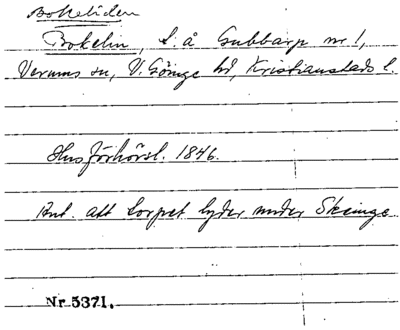 Bokeliden
Bokelin, t. å Gubbarp nr 1,
Verums sn, V. Göinge hd, Kristianstads l.
Husförhörsl. 1846.
Ant. att torpet lyder under Skeinge
Nr 5371.